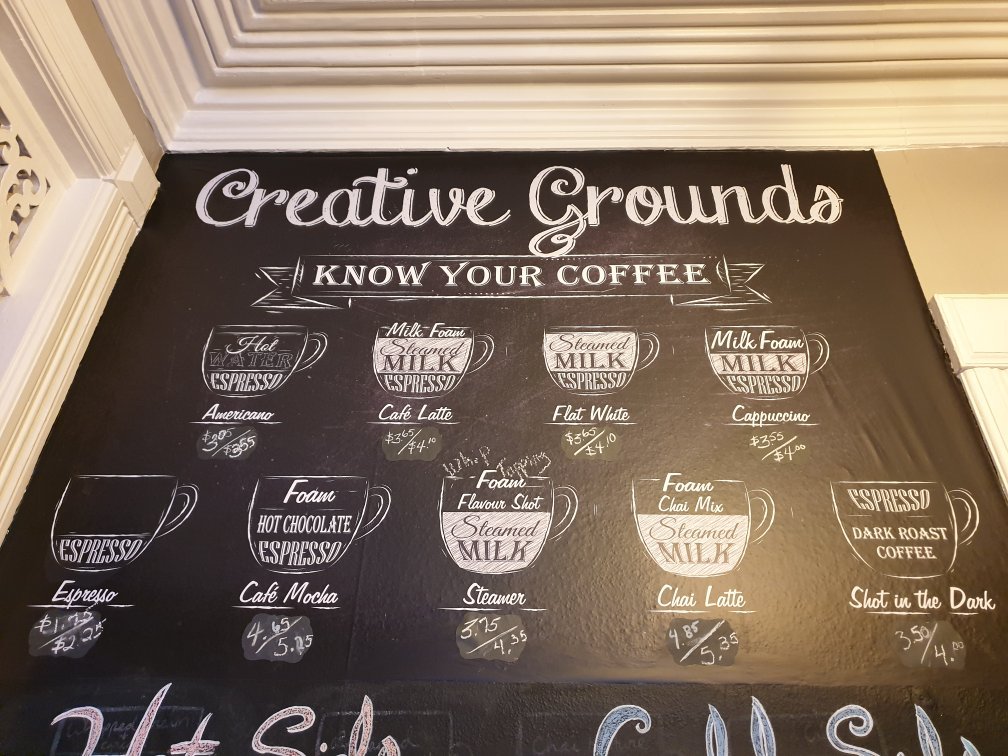 Creative Grounds
KNOW YOUR COFFEE
Hot
WATER
ESPRESSO
Americano
$3.05/$3.55
Milk Foam
Steamed
MILK
ESPRESSO
Café Latte
$3.65/$4.10
Steamed
MILK
ESPRESSO
Flat White
$3.65/$4.10
Milk Foam
MILK
ESPRESSO
Cappuccino
$3.55/$4.00
ESPRESSO
Espresso
$1.75/$2.25
Foam
HOT CHOCOLATE
ESPRESSO
Café Mocha
4.65/5.15
Whip Topping
Foam
Flavour Shot
Steamed
MILK
Steamer
3.75/4.35
Foam
Chai Mix
Steamed
MILK
Chai Latte
4.85/5.35
ESPRESSO
DARK ROAST
COFFEE
Shot in the Dark
3.50/4.00